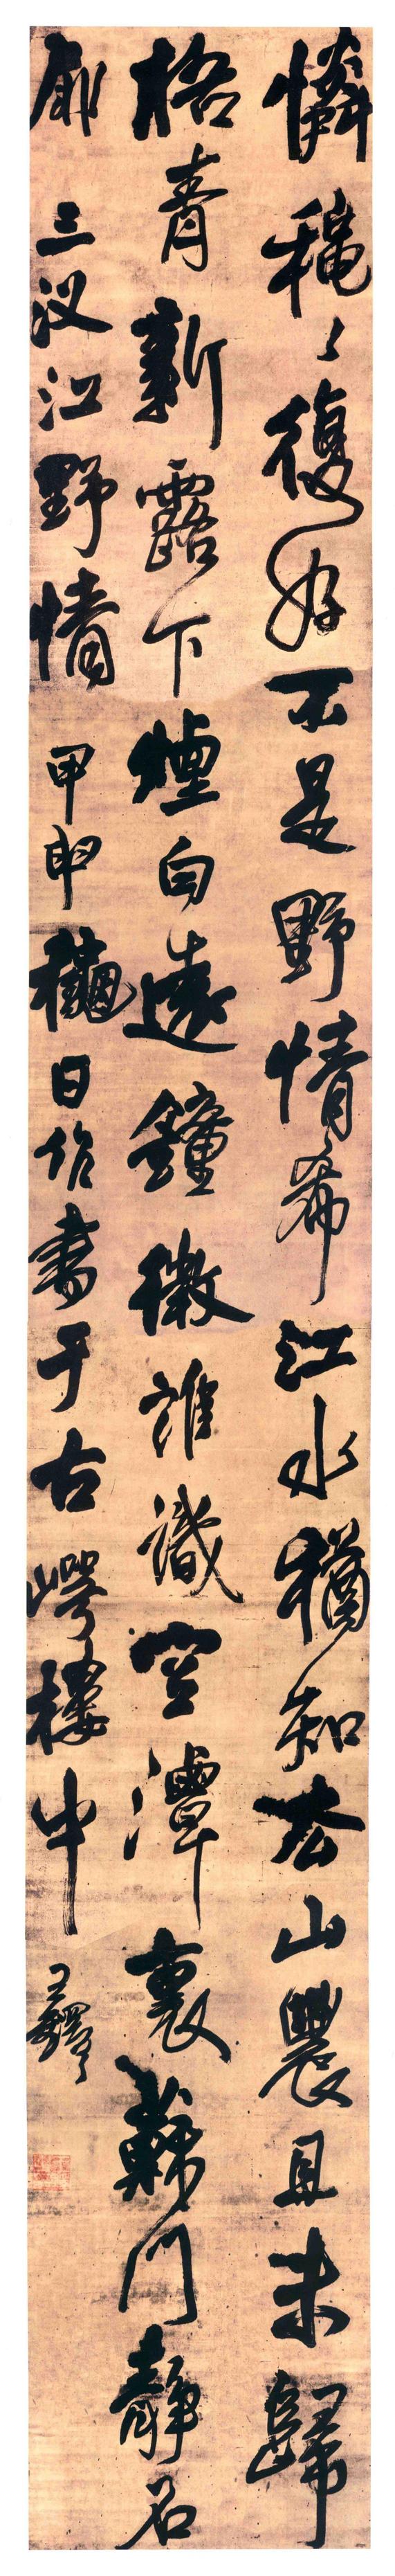 憐穐〻復好不是野情希江水猶知去山農且未歸
梧青新露下煙白遠鐘微誰識空潭裏蘇門靜石
扉 三汊江野情 甲申龝日作書于古崿樓中 王鐸